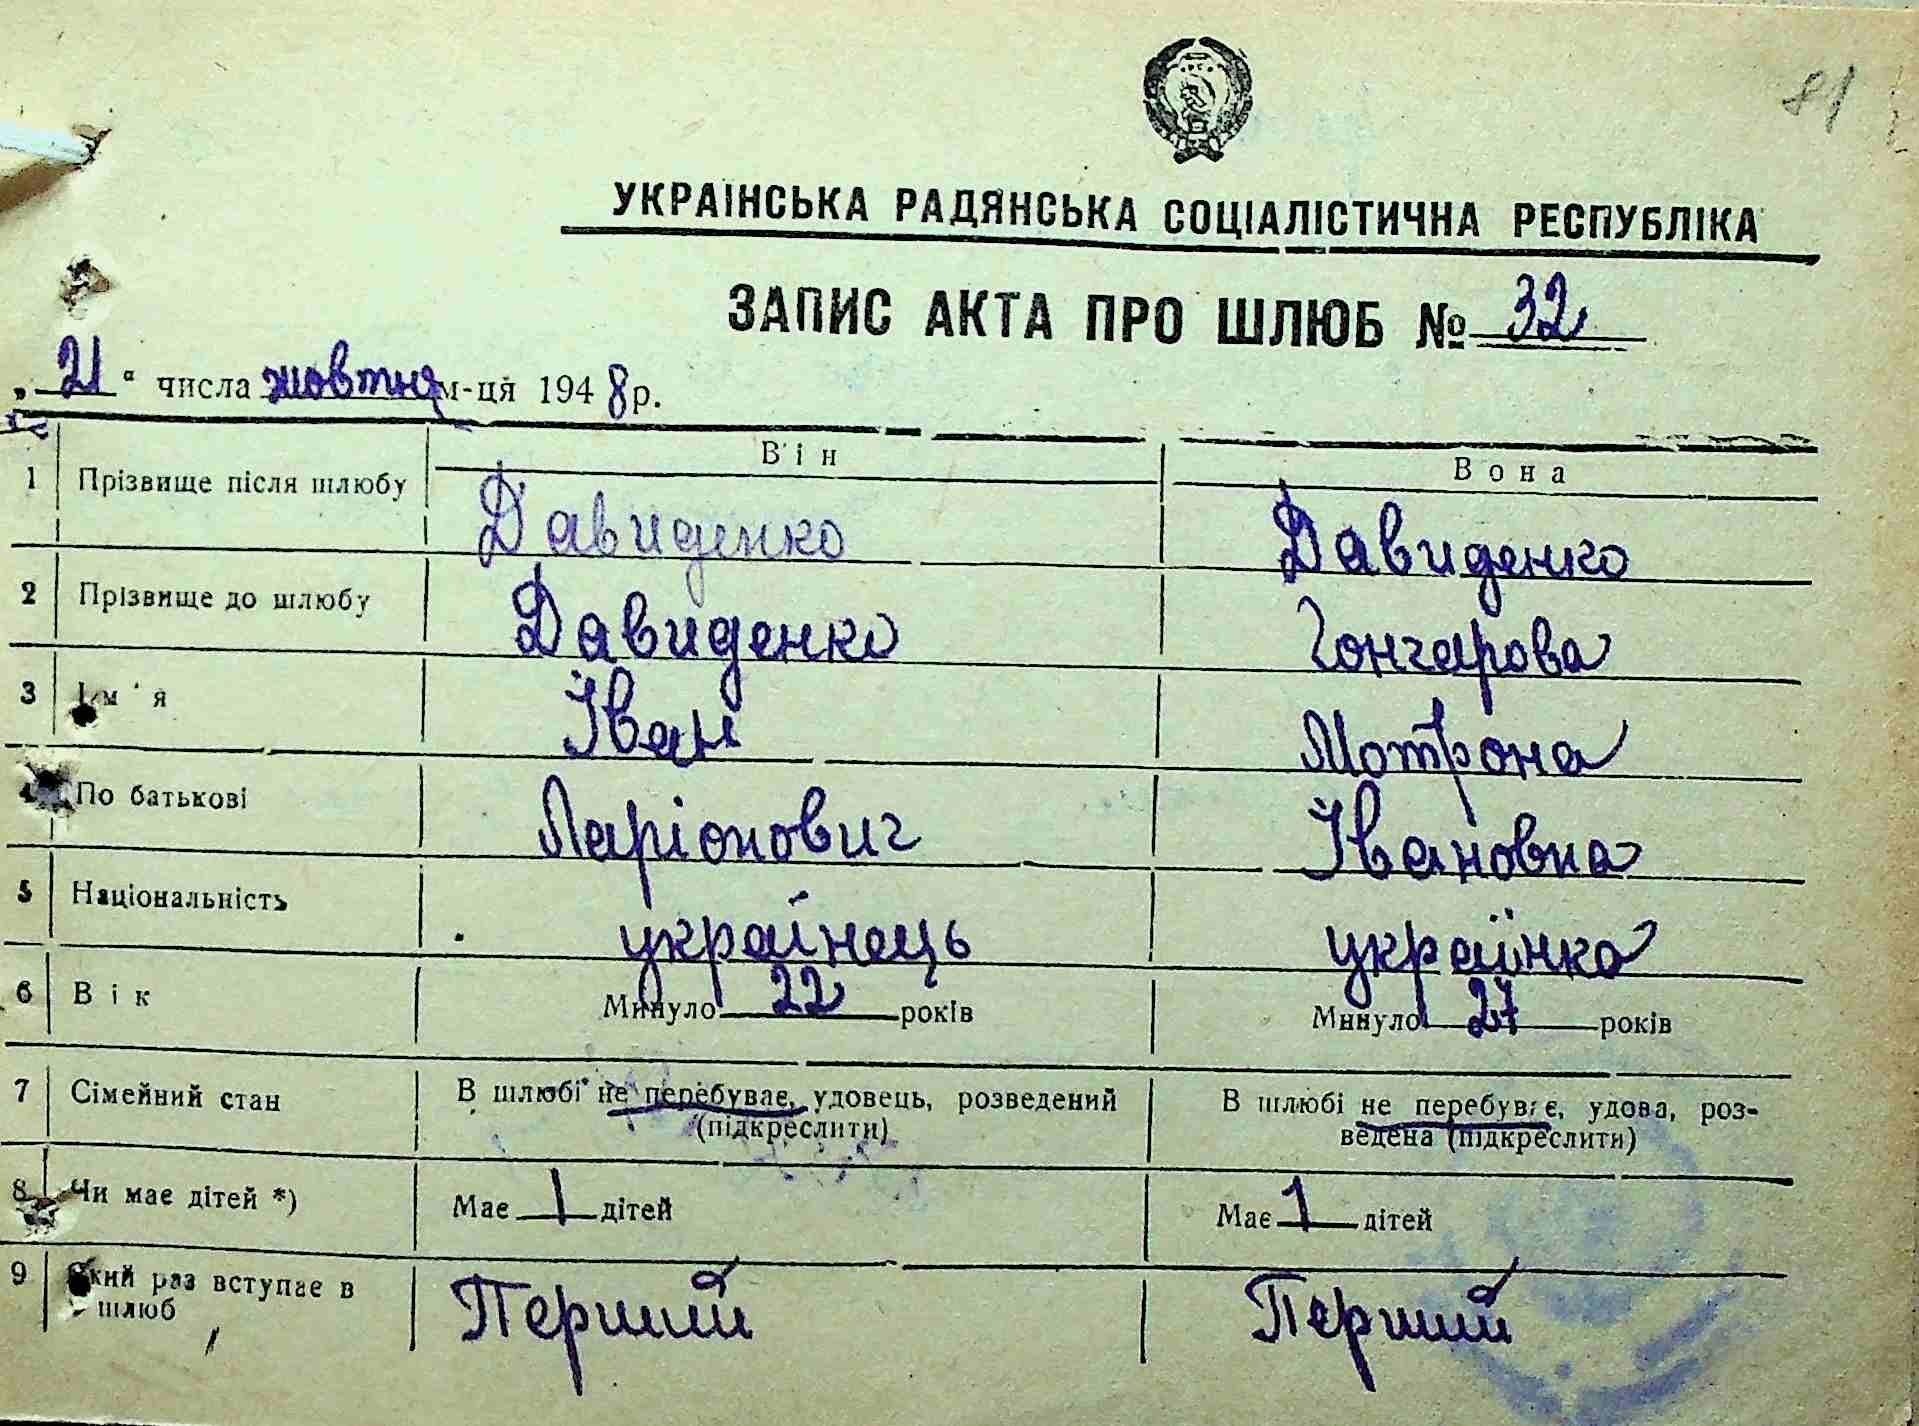 81
УКРАЇНСЬКА РАДЯНСЬКА СОЦІАЛІСТИЧНА РЕСПУБЛІКА
ЗАПИС АКТА ПРО ШЛЮБ № 32
„21“ числа жовтня м-ця 1948 р.
Він Вона
1 Прізвище після шлюбу Давиденко Давиденко
2 Прізвище до шлюбу Давиденко Гончарова
3 Ім'я Іван Мотрона
4 По батькові Ларіонович Івановна
5 Національність українець українка
6 Вік Минуло 22 років Минуло 27 років
7 Сімейний стан В шлюбі не перебуває, удовець, розведений В шлюбі не перебуває, удова, роз-
(підкреслити) ведена (підкреслити)
8 Чи має дітей *) Має 1 дітей Має 1 дітей
9 Який раз вступає в Перший Перший
шлюб